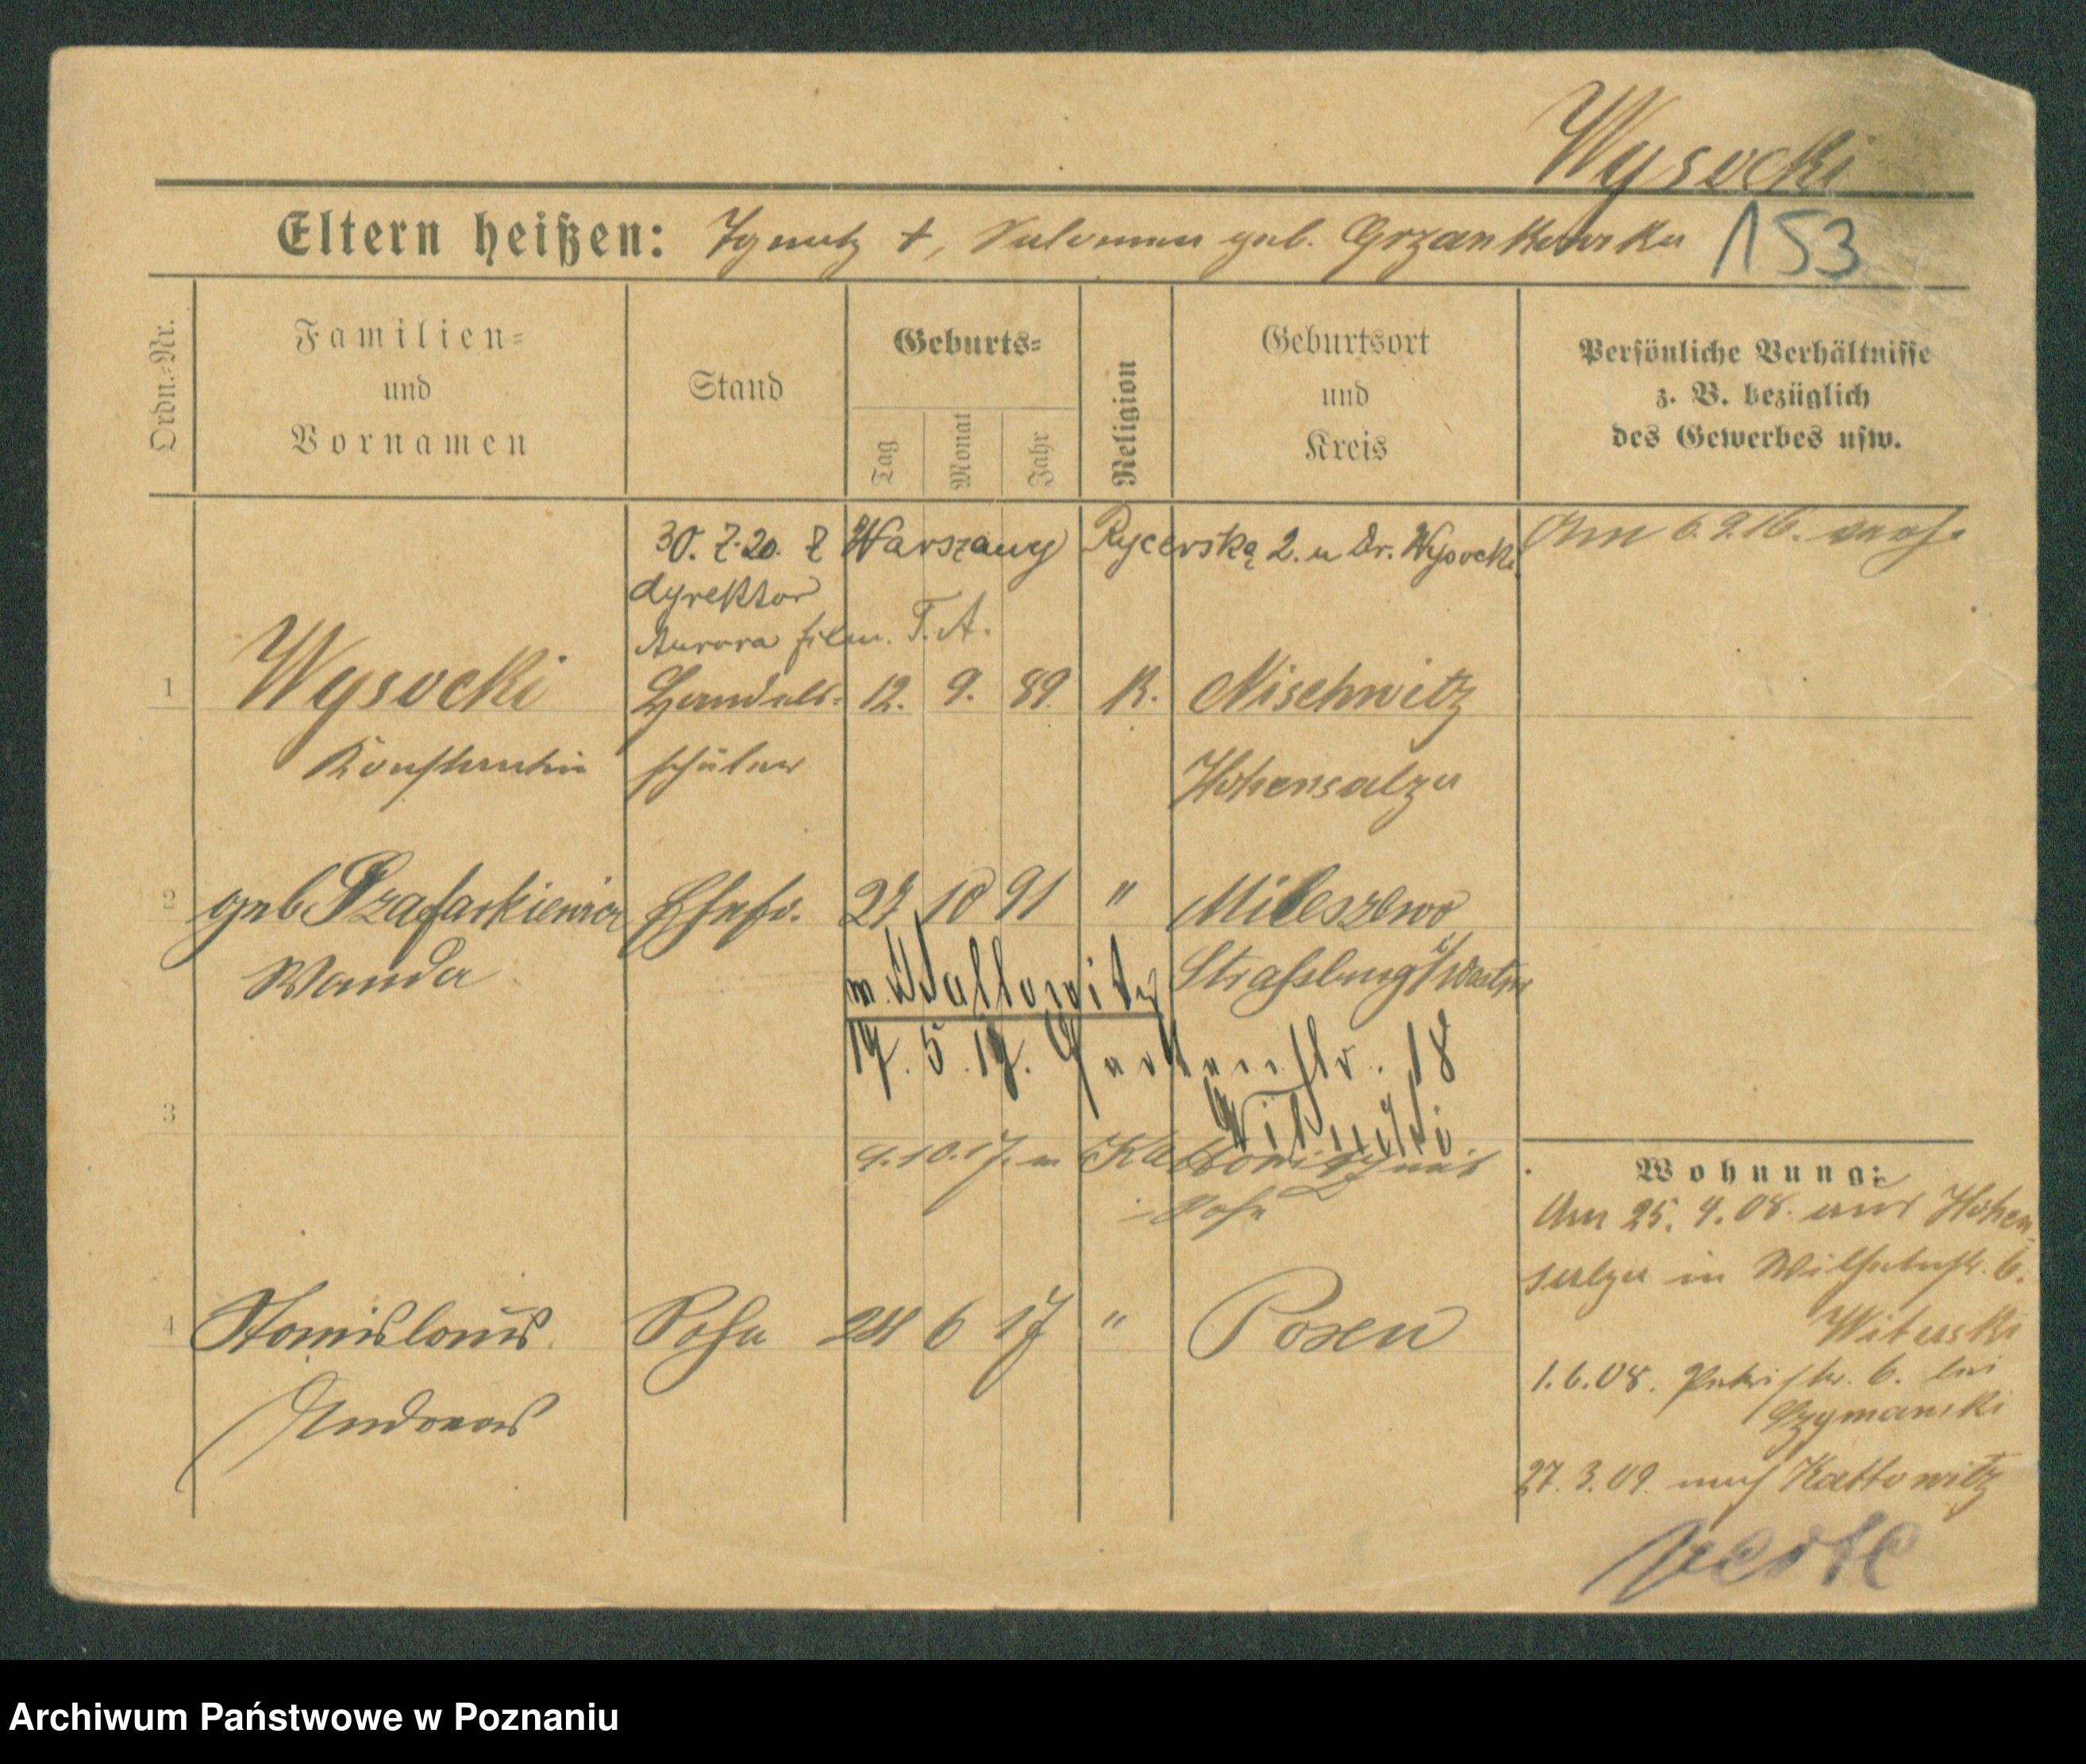 Wysocki
Eltern heißen: Ignatz †, Salomea geb. Grzankowska 153
Ordn.-Nr.
Familien-
und
Vornamen
Stand
Geburts-
Tag
Monat
Jahr
Religion
Geburtsort
und
Kreis
Persönliche Verhältnisse
z. B. bezüglich
des Gewerbes usw.
30. 7. 20. z Warszawy Rycerską 2. u Dr. Wysocki
Am 6.9.16.
dyrektor
Aurora film. T. A.
1 Wysocki Handels- 12. 9. 89. K. Mischwitz
Konstantin schüler Hohensalza
2 geb Szafarkiewicz Ehefr. 27 10 91 " Mileszewo
Wanda Strassburg i/Westpr
n. Kattowitz
19. 5. 19. Gartenstr. 18
3
9.10.17. n Kattowitz mit
Sohn
4 Stanislaus Sohn 28 6 17 " Posen
Andreas
Wohnung:
Am 25. 4. 08. aus Hohen-
salza in Wilhelmstr. 6.
Wituski
1.6.08. Petristr. 6. bei
Szymanski
27. 3. 09. nach Kattowitz
verte
Archiwum Państwowe w Poznaniu